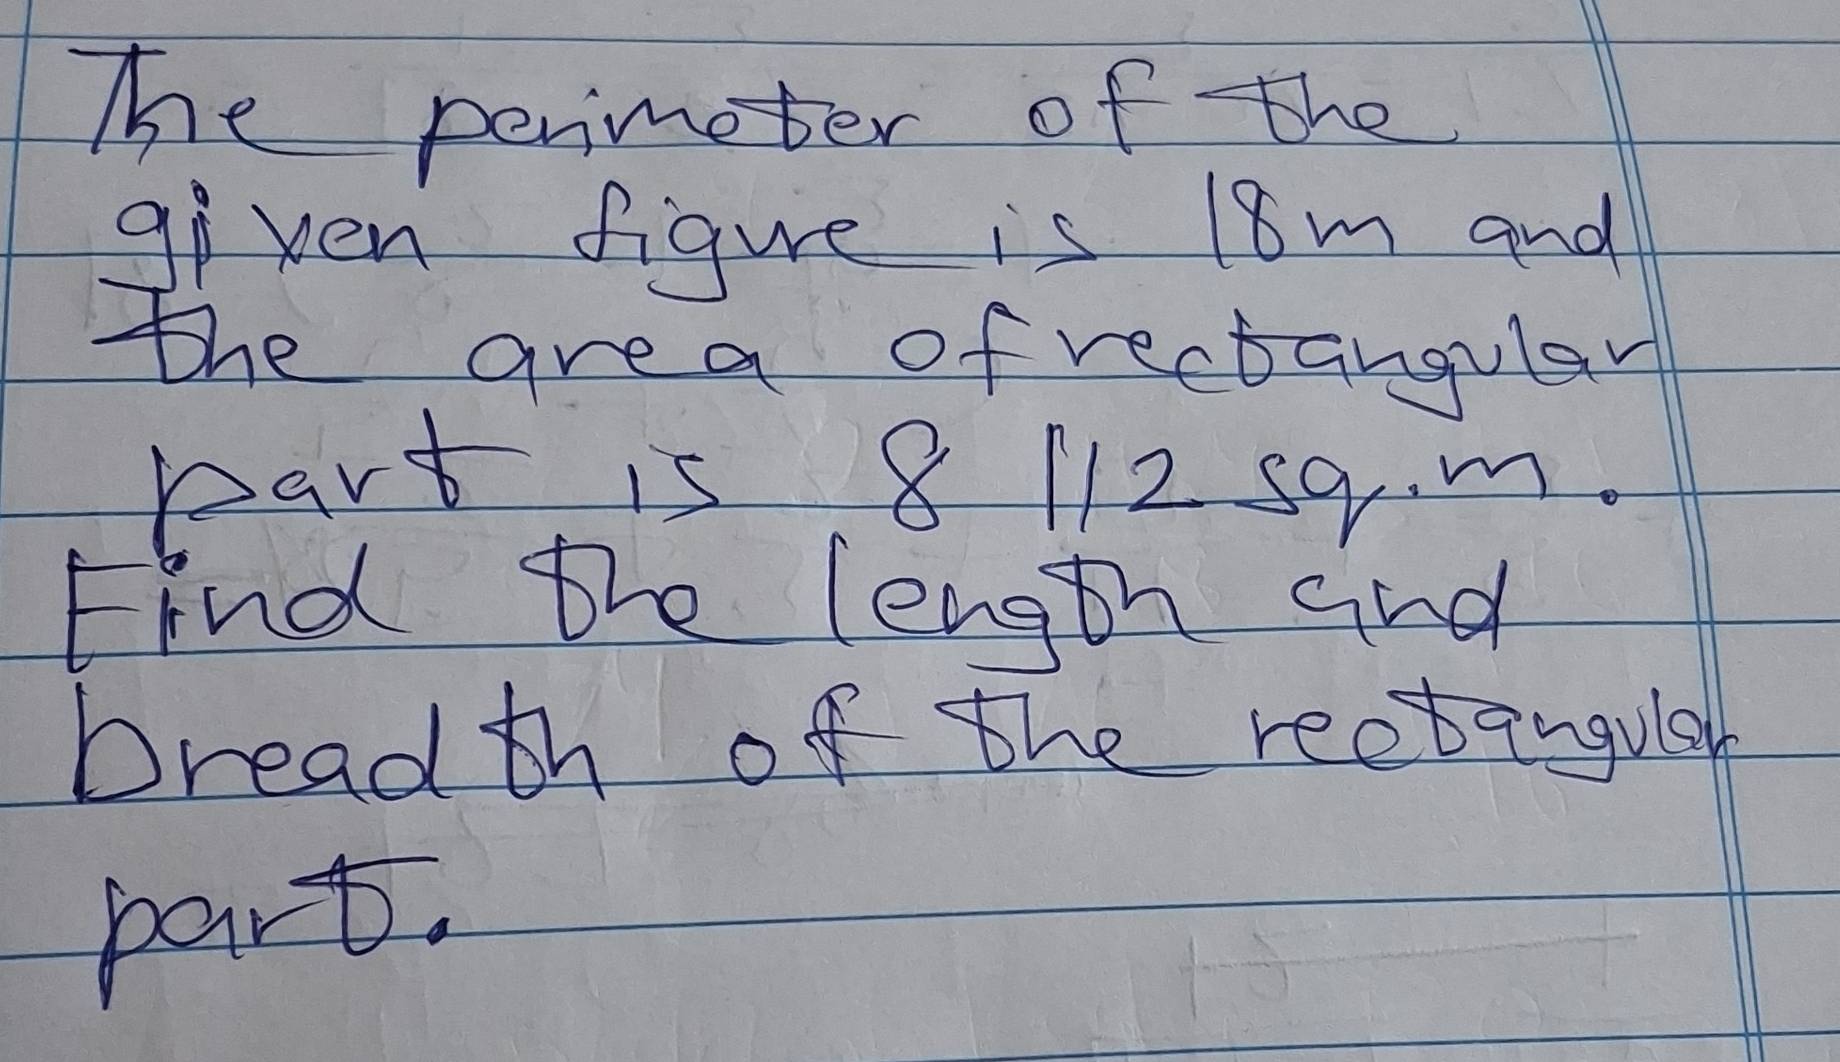 The perimeter of the
given figure is 18m and
the area of rectangular
part is 8 1/2 sq.m.
Find the length and
breadth of the rectangular
part.